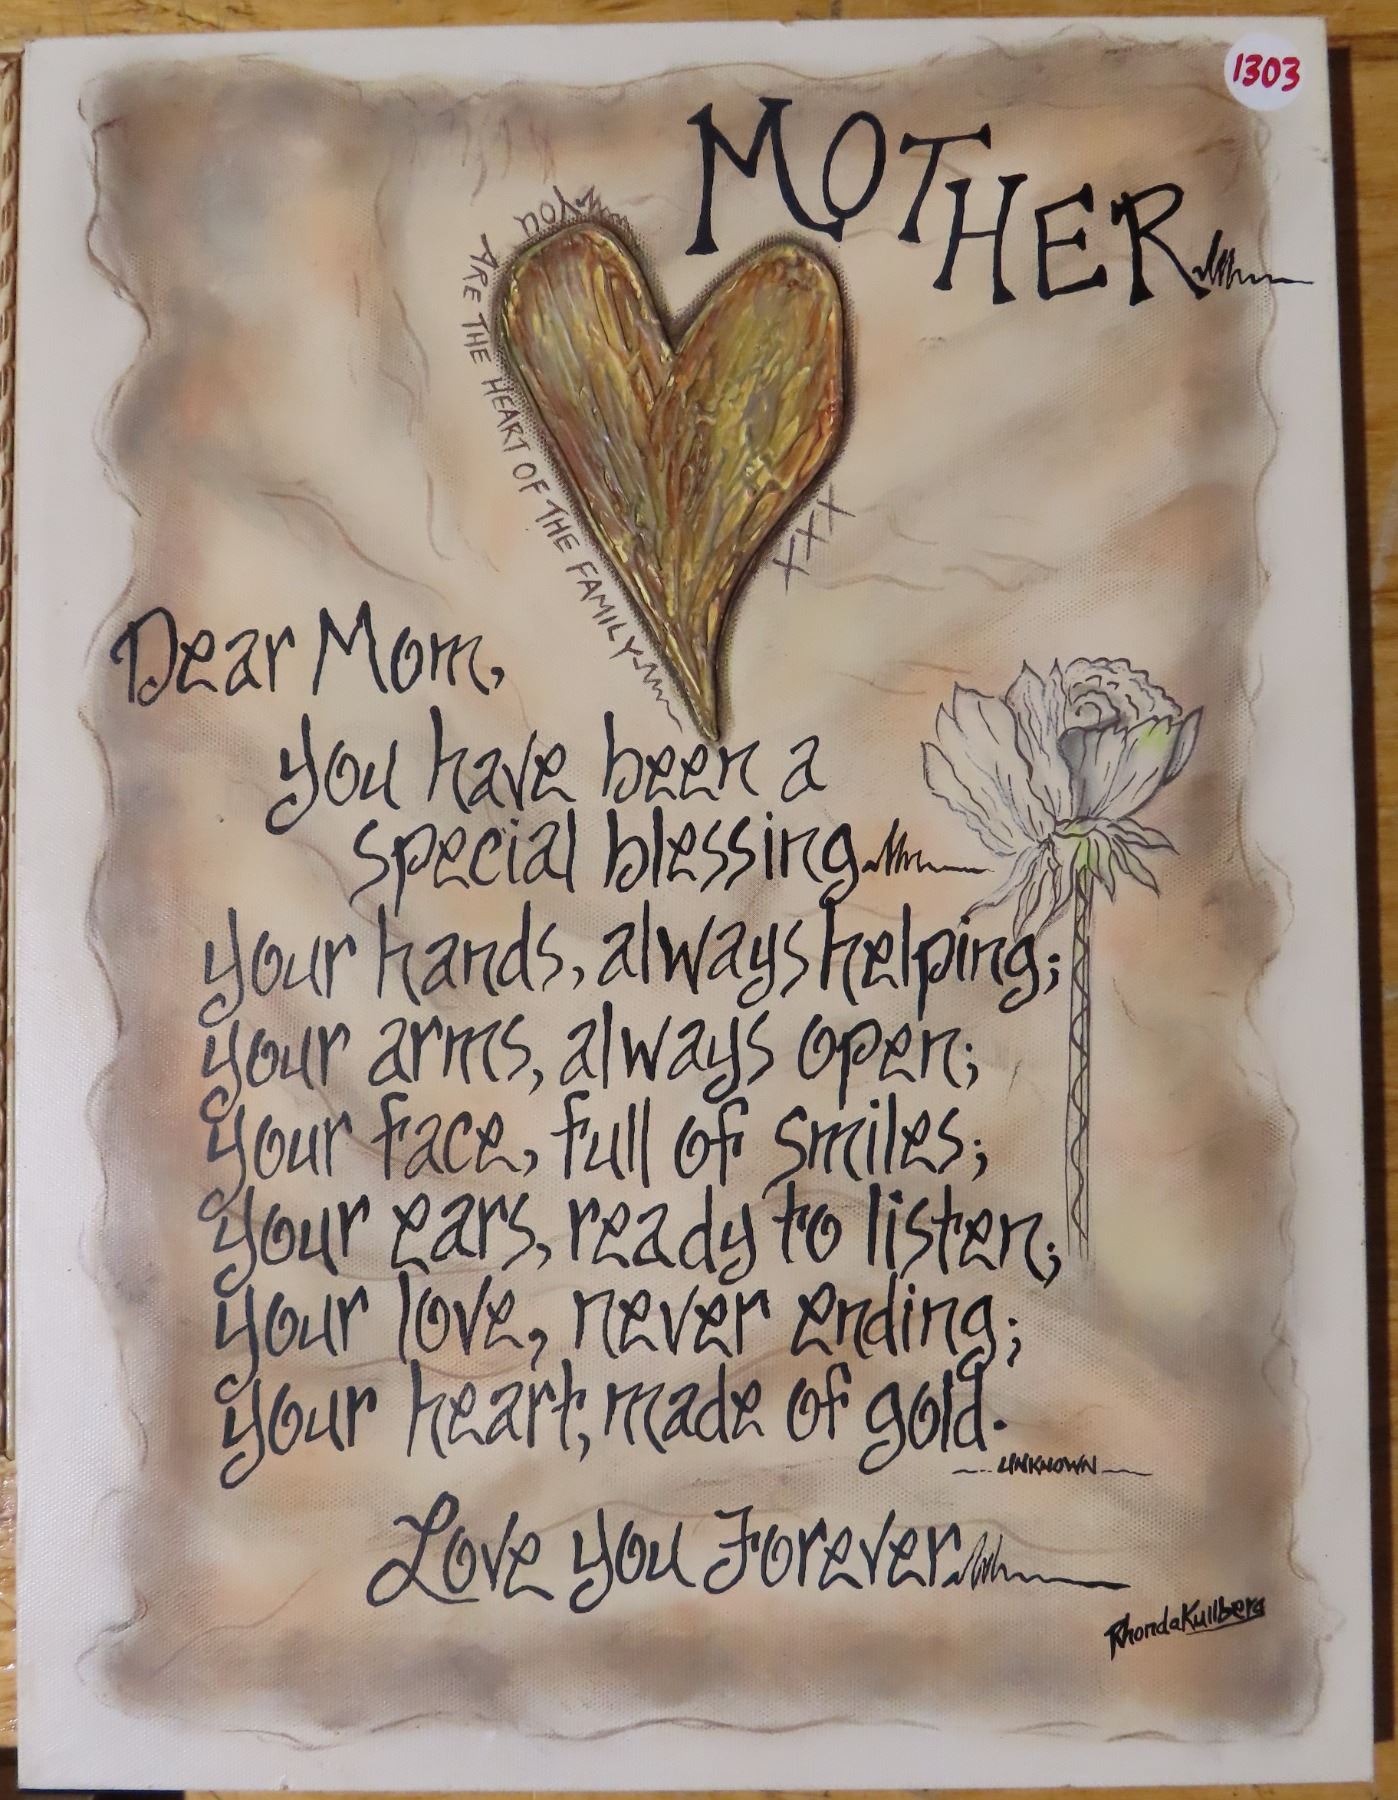 1303
MOTHER
you
ARE THE HEART OF THE FAMILY
XXX
Dear Mom,
you have been a
special blessing
your hands, always helping;
your arms, always open;
your face, full of smiles;
your ears, ready to listen;
your love, never ending;
your heart, made of gold.
UNKNOWN
Love you Forever
Rhonda Kullberg